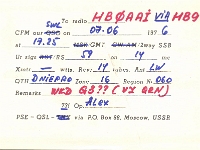 SWL
To radio HB0AAI via HB9
CFM our QSO on 07.06 1976
at 19.25 MSK GMT QW/AM/2way SSB
Ur sigs RS 59 on 14 mc
Xmtr wtts. Rcvr 17 tubes. Ant LW
QTH DNIEPRO Zone 16 Region Nr 060
Remarks WKD
73! Op. Alex
PSE - QSL - via P.O. Box 88, Moscow, USSR